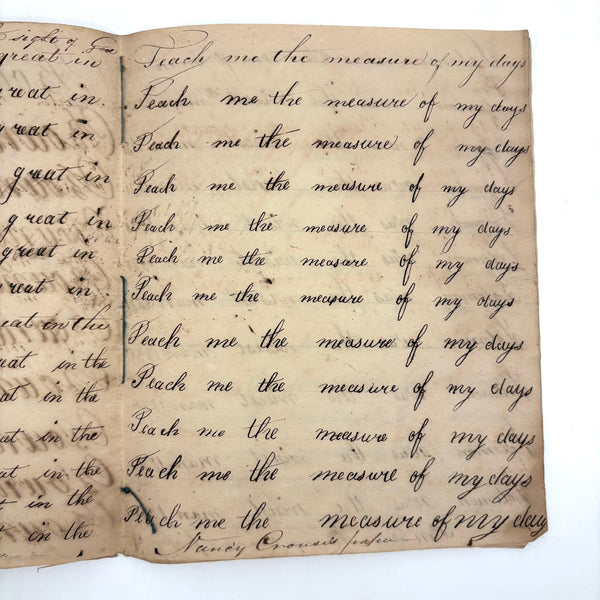 sight of God
great in
reat in.
great in
great in
great in
great in
great in.
eat in the
reat in the
at in the
at in the
at in the
t in the
in the
Teach me the measure of my days
Teach me the measure of my days
Teach me the measure of my days
Teach me the measure of my days
Teach me the measure of my days
Teach me the measure of my days
Teach me the measure of my days
Teach me the measure of my days
Teach me the measure of my days
Teach me the measure of my days
Teach me the measure of my days
Teach me the measure of my day
Nancy Crouse's